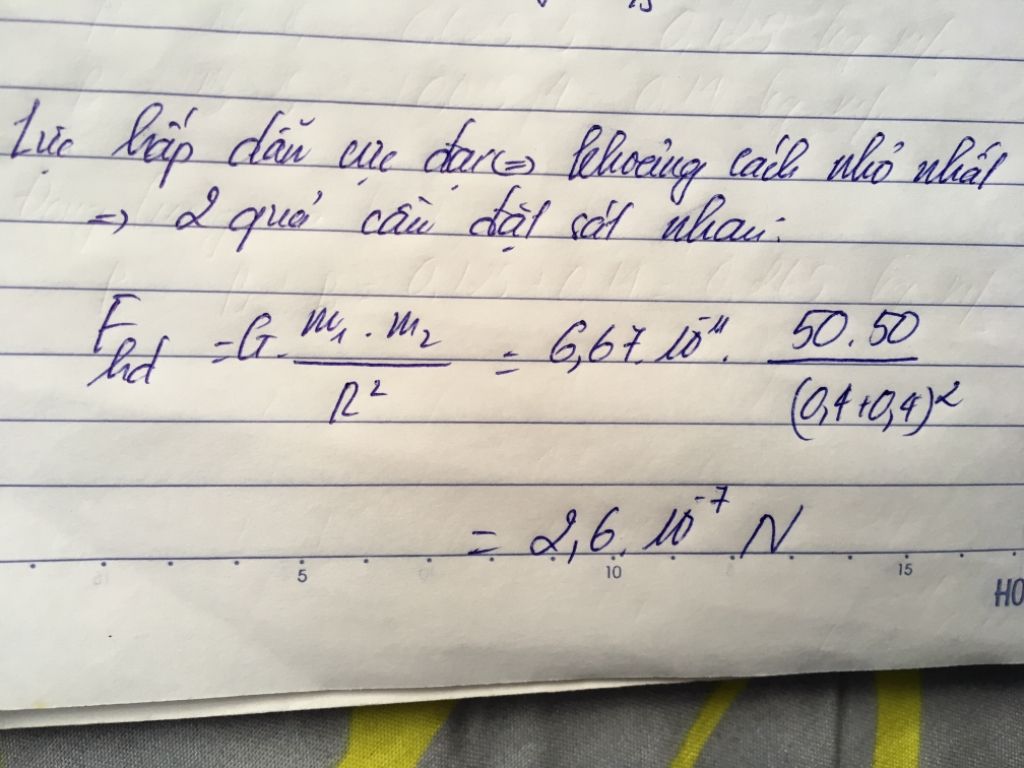 Lực hấp dẫn cực đại => khoảng cách nhỏ nhất
=> 2 quả cầu đặt sát nhau:
F hd = G. m₁ . m₂ / R² = 6,67.10⁻¹¹. 50.50 / (0,4+0,4)²
= 2,6. 10⁻⁷ N
5 10 15
HO